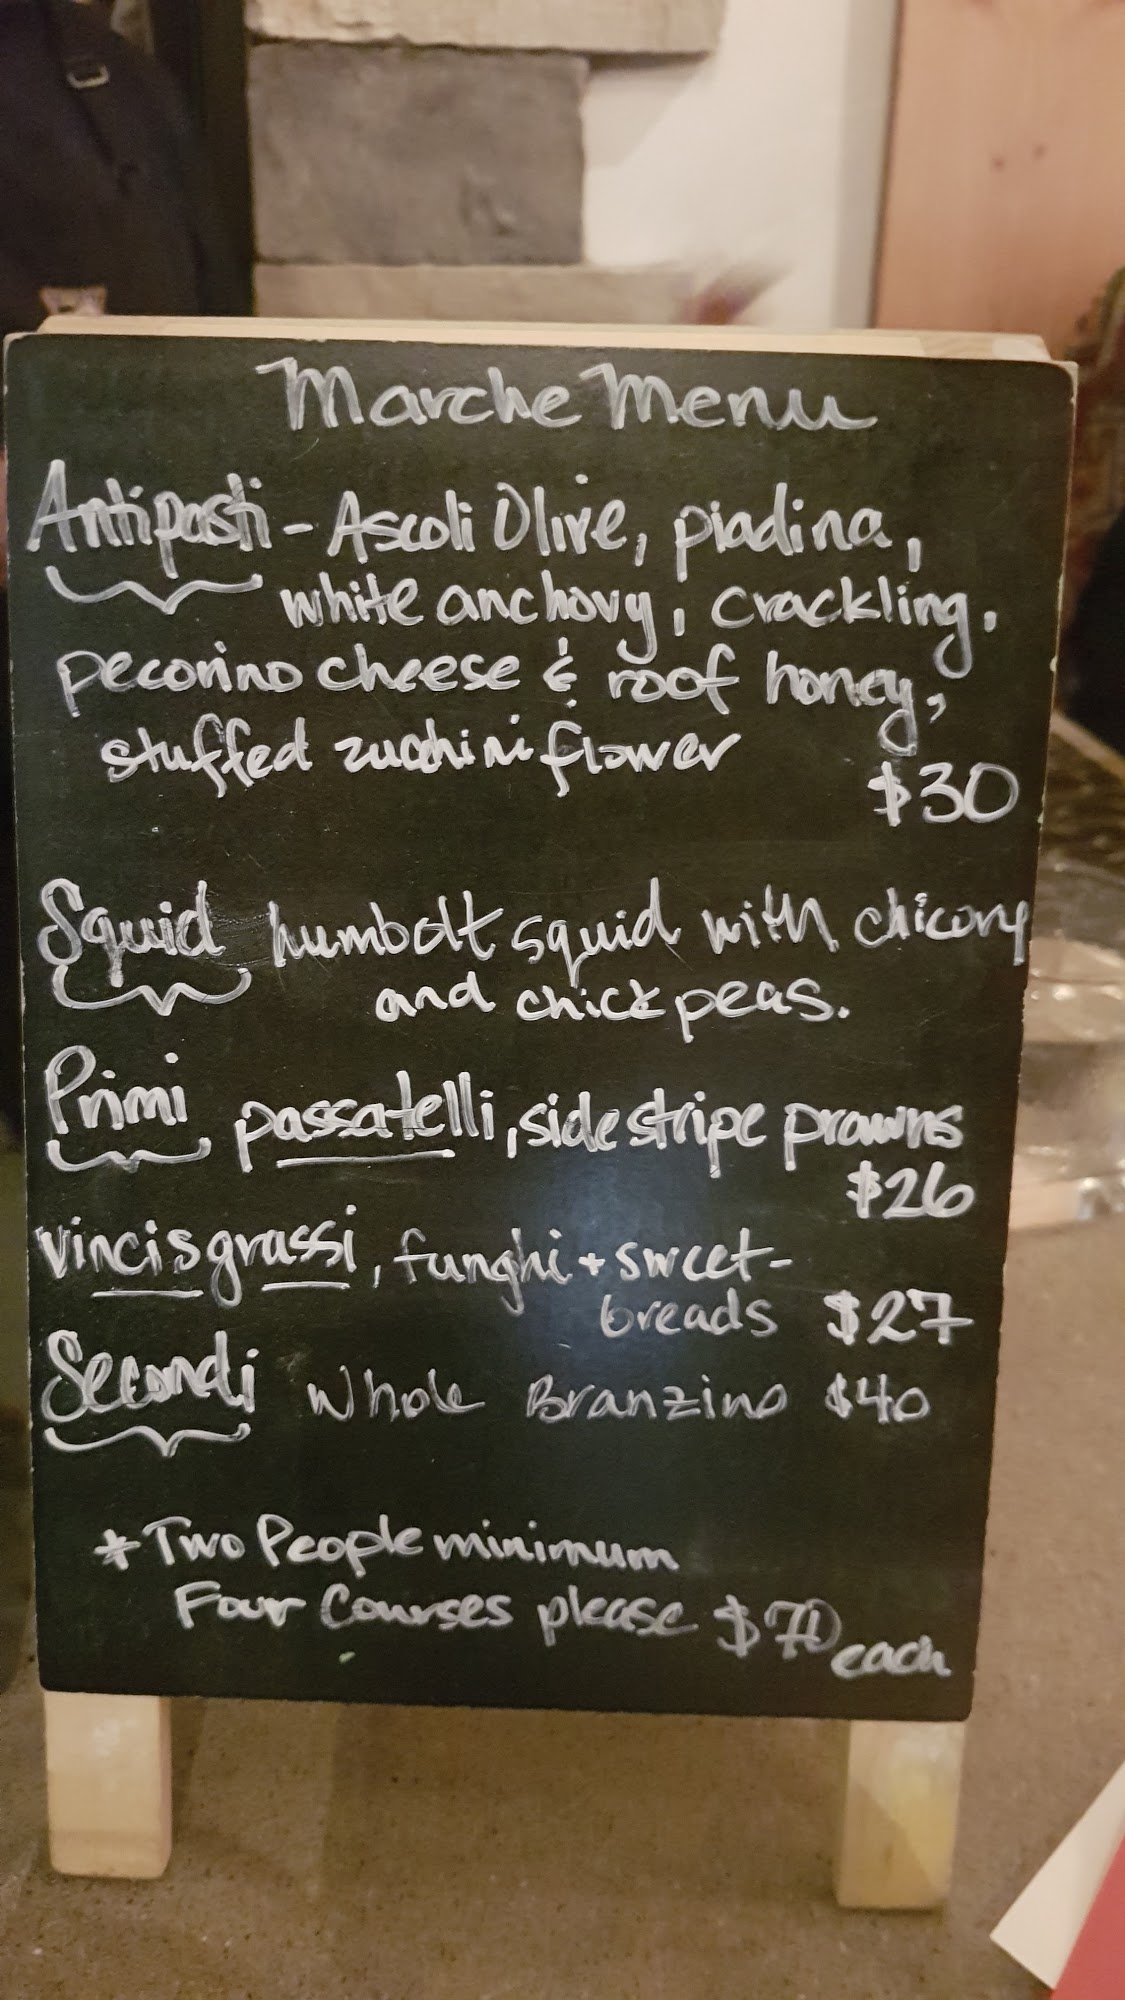 Marche Menu
Antipasti - Ascoli Olive, piadina,
white anchovy, crackling,
pecorino cheese & roof honey,
stuffed zucchini flower
$30
Squid humbolt squid with chicory
and chickpeas.
Primi passatelli, sidestripe prawns
$26
vincisgrassi, funghi + sweet-
breads $27
Secondi Whole Branzino $40
* Two People minimum
Four Courses please $70 each